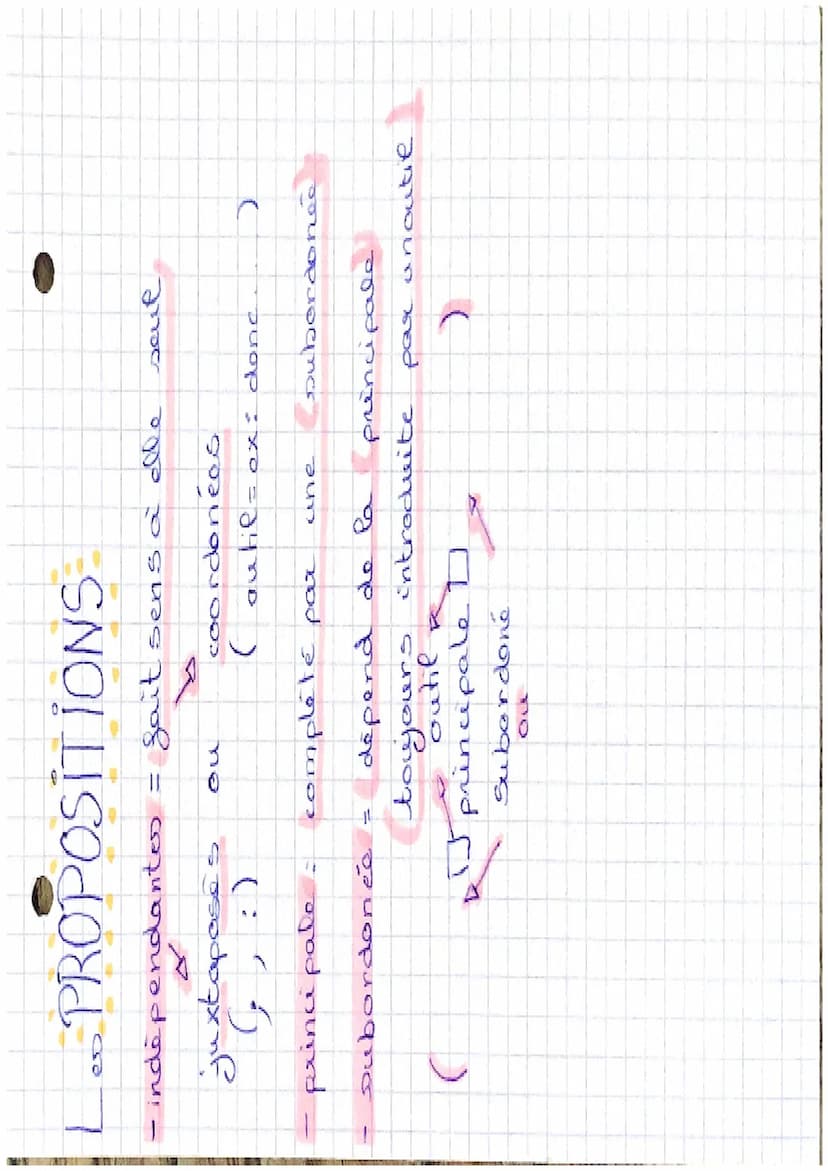 Les PROPOSITIONS
- indépendantes = fait sens à elle seul
juxtaposés ou coordonées
(; , :) (outil = ex : donc ... )
- principale : complété par une subordonée
- subordonée = dépend de la principale
toujours introduite par un outil
outil
( principale )
subordoné
ou